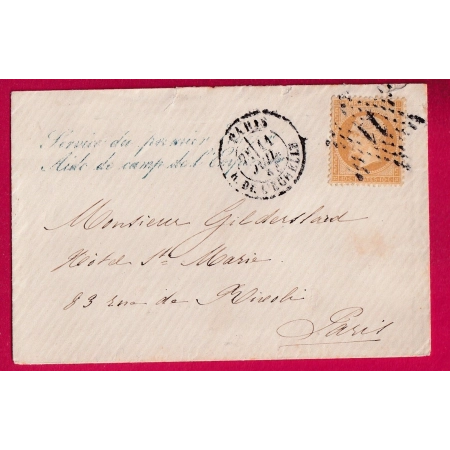 Service du premier
Aide de camp de l'Em
PARIS
R. DE L'ECHELLE
Monsieur Gildersland
Hôtel Ste Marie
83 rue de Rivoli
Paris